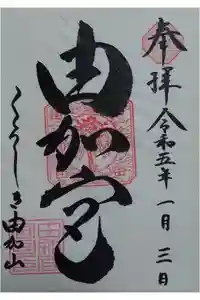 奉拝 令和五年 一月 三日
由加宮
くらしき由加山